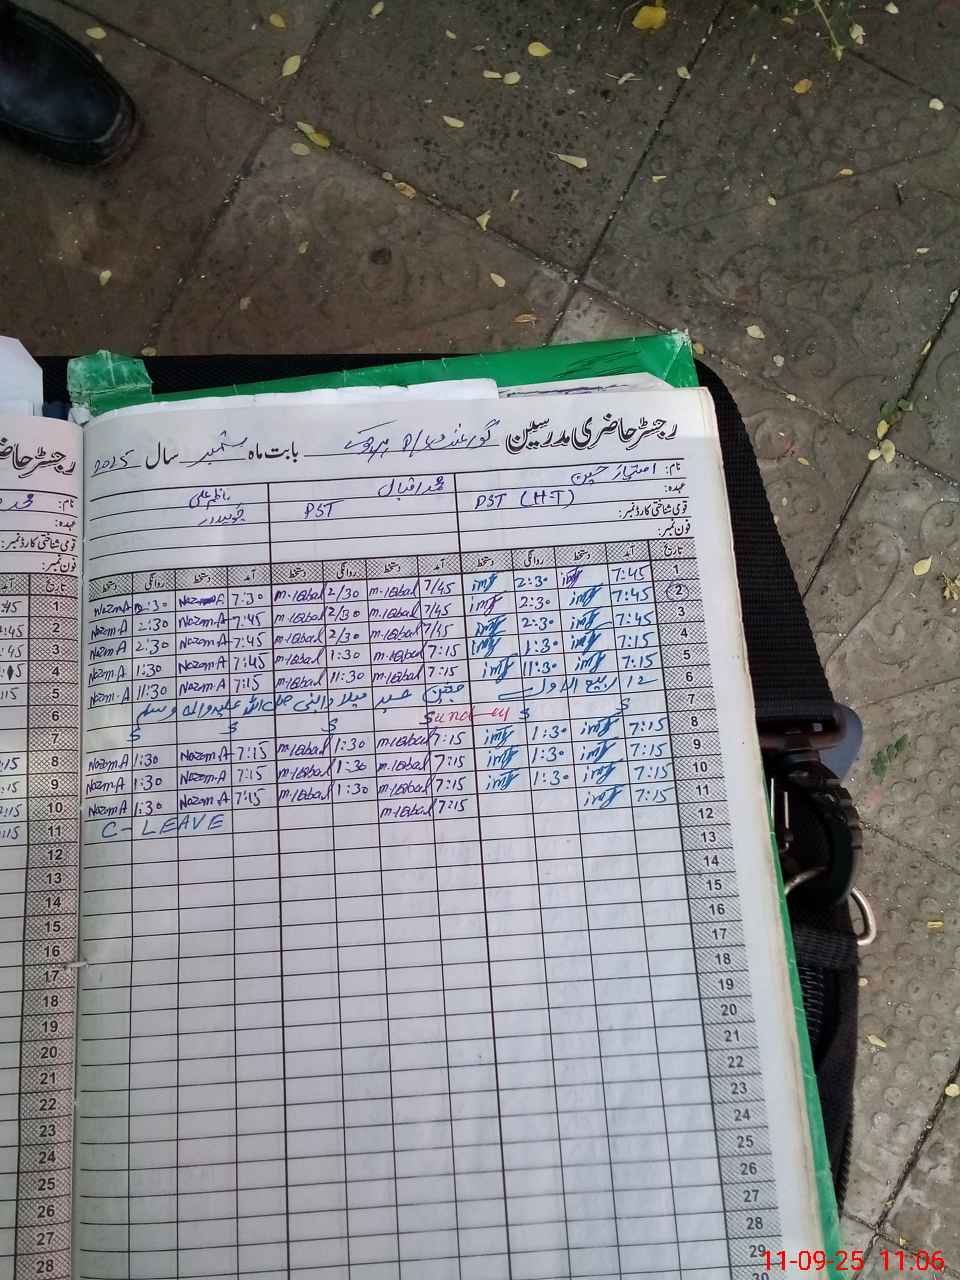 رجسٹر حاضری مدرسین گورنمنٹ P/S بابت ماہ ستمبر سال 2025
نام: امتیاز حسین محمد اقبال ناظم علی
عہدہ: PST (H.T) PST چوکیدار
قومی شناختی کارڈ نمبر:
فون نمبر:
تاریخ آمد دستخط روانگی دستخط آمد دستخط روانگی دستخط آمد دستخط روانگی دستخط
1 7:45 imt 2:30 imt 7/45 m.iqbal 2/30 m.iqbal 7:30 Nazm A 2:30 Nazm A
2 7:45 imt 2:30 imt 7/45 m.iqbal 2/30 m.iqbal 7:45 Nazm A 2:30 Nazm A
3 7:45 imt 2:30 imt 7/45 m.iqbal 2/30 m.iqbal 7:45 Nazm A 2:30 Nazm A
4 7:15 imt 1:30 imt 7:15 m.iqbal 1:30 m.iqbal 7:45 Nazm A 1:30 Nazm A
5 7:15 imt 11:30 imt 7:15 m.iqbal 11:30 m.iqbal 7:15 Nazm A 11:30 Nazm A
6 12 ربیع الاول عید میلاد النبی صلی اللہ علیہ والہ وسلم
7 S S Sunday S S S
8 7:15 imt 1:30 imt 7:15 m.iqbal 1:30 m.iqbal 7:15 Nazm A 1:30 Nazm A
9 7:15 imt 1:30 imt 7:15 m.iqbal 1:30 m.iqbal 7:15 Nazm A 1:30 Nazm A
10 7:15 imt 1:30 imt 7:15 m.iqbal 1:30 m.iqbal 7:15 Nazm A 1:30 Nazm A
11 7:15 imt 7:15 m.iqbal C-LEAVE
12
13
14
15
16
17
18
19
20
21
22
23
24
25
26
27
28
29
رجسٹر
نام: محمد
عہدہ:
قومی شناختی کارڈ نمبر:
فون نمبر:
تاریخ آمد
1 :45
2 :45
3 :45
4
5 :15
6
7
8 :15
9 :15
10 :15
11 :15
12
13
14
15
16
17
18
19
20
21
22
23
24
25
26
27
28
11-09-25 11:06